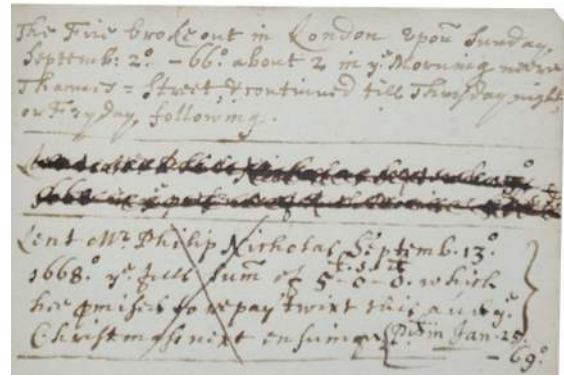 The Fire broke out in London upon Sunday,
Septemb: 2º. - 66º. about 2 in yᵉ Morning neere
Thames = Street, & continued till Thursday night,
or Fryday, following.
Philip Nicholas Septemb.
Lent Mr. Philip Nicholas Septemb. 13º.
1668º. yᵉ full sum̄ of 5 - 0 - 0. which
hee p̱mised to repay 'twixt this and yᵉ
Christmass next ensuing. Pd. in Jan - 25.
- 69º.